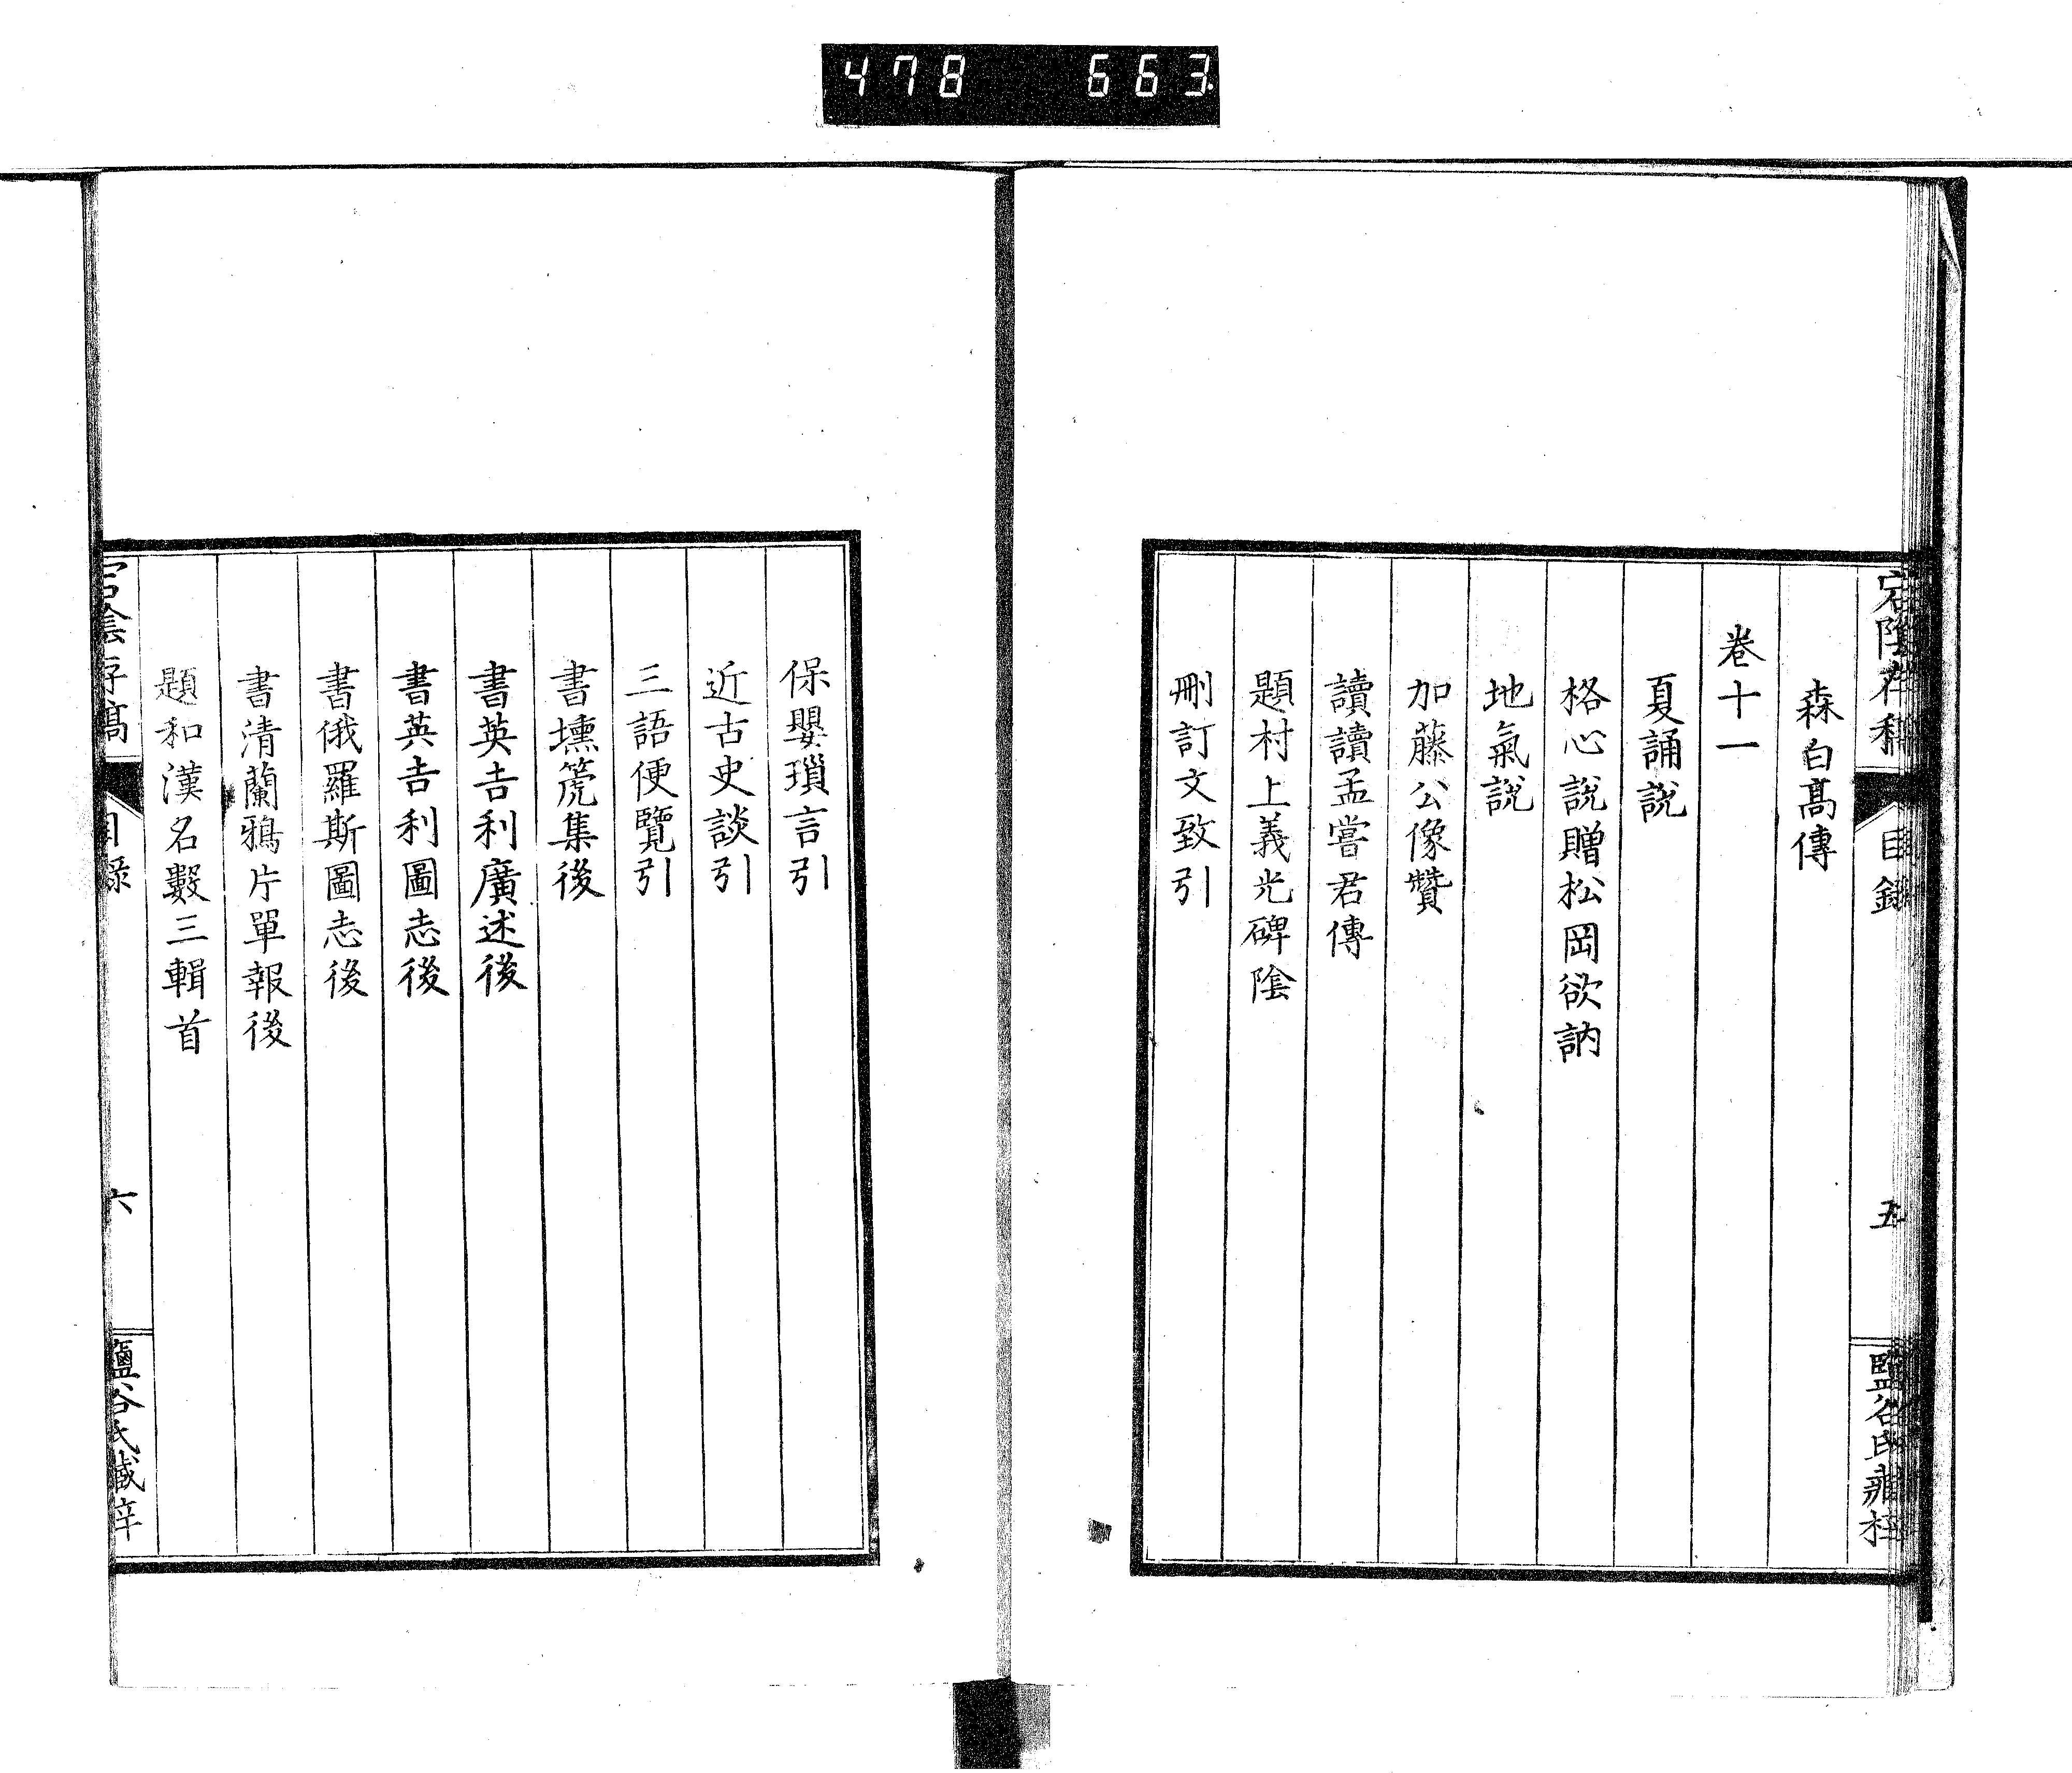 478 663
宕陰存稿 目錄 五 鹽谷氏藏梓
森白髙傳
卷十一
夏誦說
格心說贈松岡欲訥
地氣說
加藤公像贊
讀讀孟嘗君傳
題村上義光碑陰
刪訂文致引
保嬰瑣言引
近古史談引
三語便覽引
書壎箎集後
書英吉利廣述後
書英吉利圖志後
書俄羅斯圖志後
書清蘭鴉片單報後
題和漢名數三輯首
宕陰存稿 目錄 六 鹽谷氏藏梓